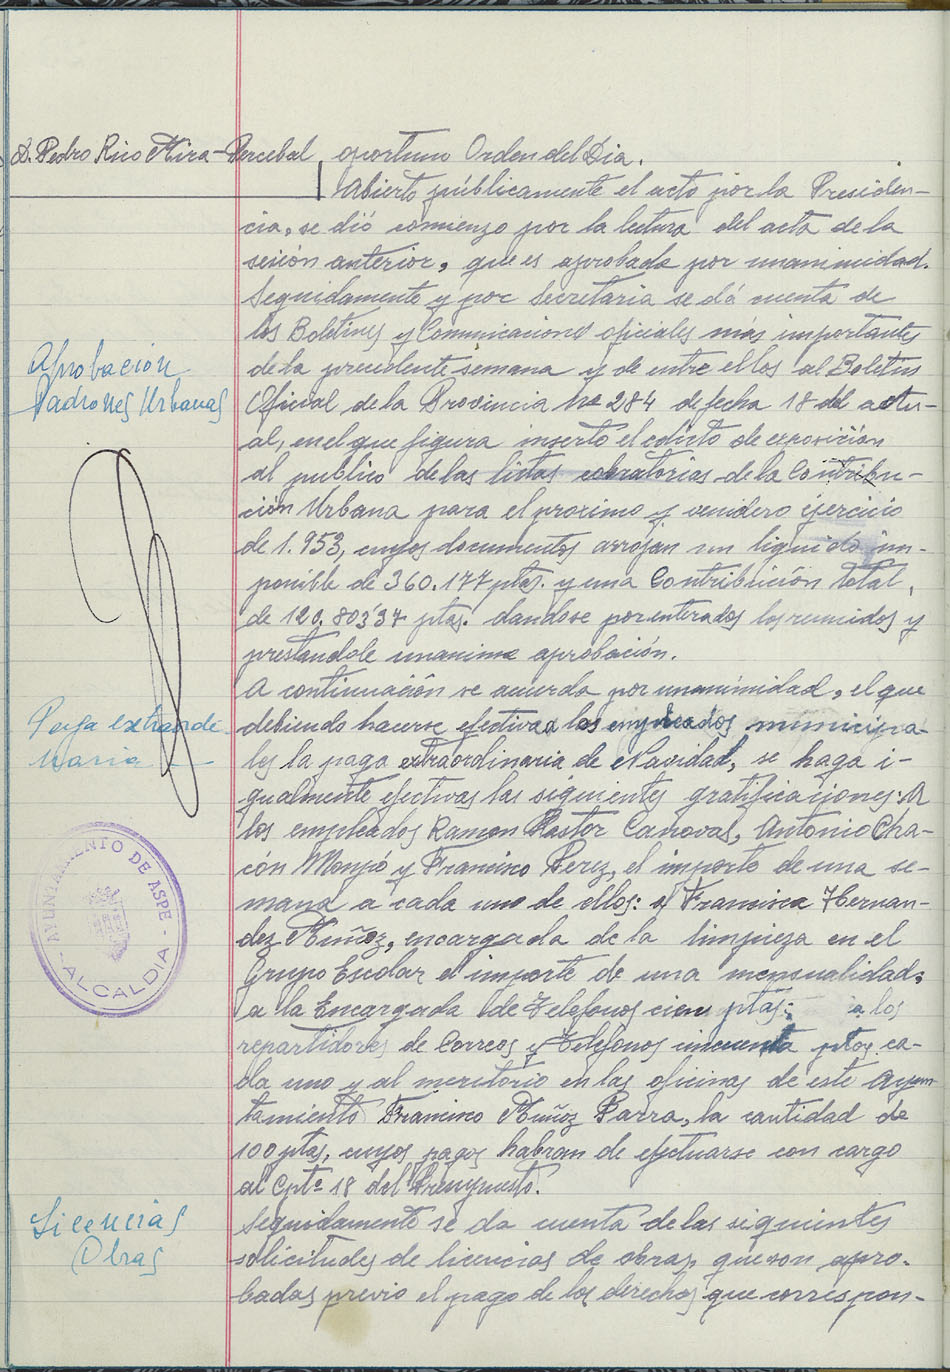 D. Pedro Rico Mira-Percebal
oportuno Orden del Dia.
Abierto públicamente el acto por la Presiden-
cia, se dió comienzo por la lectura del acta de la
sesión anterior, que es aprobada por unanimidad.
Seguidamente y por Secretaria se dá cuenta de
los Boletines y Comunicaciones oficiales más importantes
de la precedente semana y de entre ellos al Boletin
Oficial de la Provincia nº 284 de fecha 18 del actu-
al, en el que figura inserto el edicto de exposición
al publico de las listas cobratorias de la Contribu-
ción Urbana para el proximo y venidero ejercicio
de 1.953, cuyos documentos arrojan un liquido im-
ponible de 360.177 ptas. y una Contribución total,
de 120.803'37 ptas: dandose por enterados los reunidos y
prestandole unanime aprobación.
A continuación se acuerda por unanimidad, el que
debiendo hacerse efectiva a los empleados municipa-
les la paga extraordinaria de Navidad, se haga i-
gualmente efectivas las siguientes gratificaciones: A
los empleados Ramon Pastor Canoval, Antonio Cha-
cón Monjó y Francisco Perez, el importe de una se-
mana a cada uno de ellos: a Francisca Hernan-
dez Muñoz, encargada de la limpieza en el
Grupo Escolar el importe de una mensualidad;
a la Encargada de Telefonos cien ptas; a los
repartidores de Correos y Telefonos cincuenta ptas ca-
da uno y al meritorio en las oficinas de este Ayun-
tamiento Francisco Muñoz Parra, la cantidad de
100 ptas, cuyos pagos habran de efectuarse con cargo
al Cptº 18 del Presupuesto.
Seguidamente se da cuenta de las siguientes
solicitudes de licencias de obras, que son apro-
badas previo el pago de los derechos que correspon-
Aprobación
Padrones Urbanas
Paga extraordi
naria
AYUNTAMIENTO DE ASPE
- ALCALDIA -
Licencias
Obras